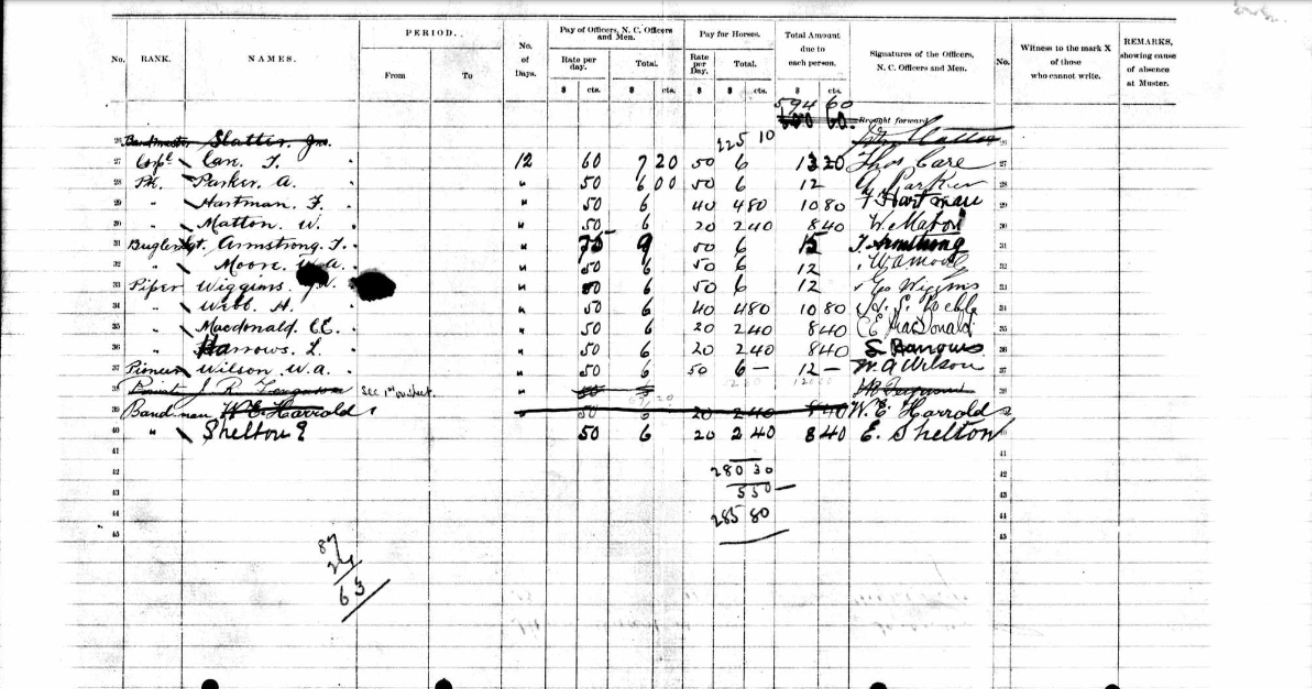 PERIOD.. Pay of Officers, N. C. Officers and Men. Pay for Horses. Total Amount due to each person. REMARKS, showing cause of absence at Muster.
No. RANK. NAMES. From To No. of Days. Rate per day. Total. Rate per Day. Total. Signatures of the Officers, N. C. Officers and Men. No. Witness to the mark X of those who cannot write.
$ cts. $ cts. $ cts. $ cts.
594 60
Brought forward
26 Bandmaster Slatter. Jno. 225 10 26
27 Corpl Care. T. 12 60 7 20 50 6 13 20 Thos Care 27
28 Pte. Parker. A. " 50 6 00 50 6 12 A Parker 28
29 " Hartman. F. " 50 6 40 4 80 10 80 F Hartman 29
30 " Matton. W. " 50 6 20 2 40 8 40 W. Maton 30
31 Bugler Sgt. Armstrong. T. " 75 9 50 6 15 T. Armstrong 31
32 " Moore. W.A. " 50 6 50 6 12 WA Moore 32
33 Piper Wiggins. " 50 6 50 6 12 Geo Wiggins 33
34 " Webb. H. " 50 6 40 4 80 10 80 34
35 " Macdonald. C.E. " 50 6 20 2 40 8 40 CE MacDonald 35
36 " Barrows. L. " 50 6 20 2 40 8 40 L Barrows 36
37 Pioneer Wilson. W.a. " 50 6 50 6 — 12 — W. A Wilson 37
38 Private J R Ferguson See 1st on sheet. 50 6 JR Ferguson 38
39 Bandsman W. E. Harrold " 50 6 20 2 40 8 40 W. E. Harrold
40 " Shelton E 50 6 20 2 40 8 40 E. Shelton
41 41
42 280 30 42
43 5 50 — 43
44 285 80 44
45 45
87
24
63